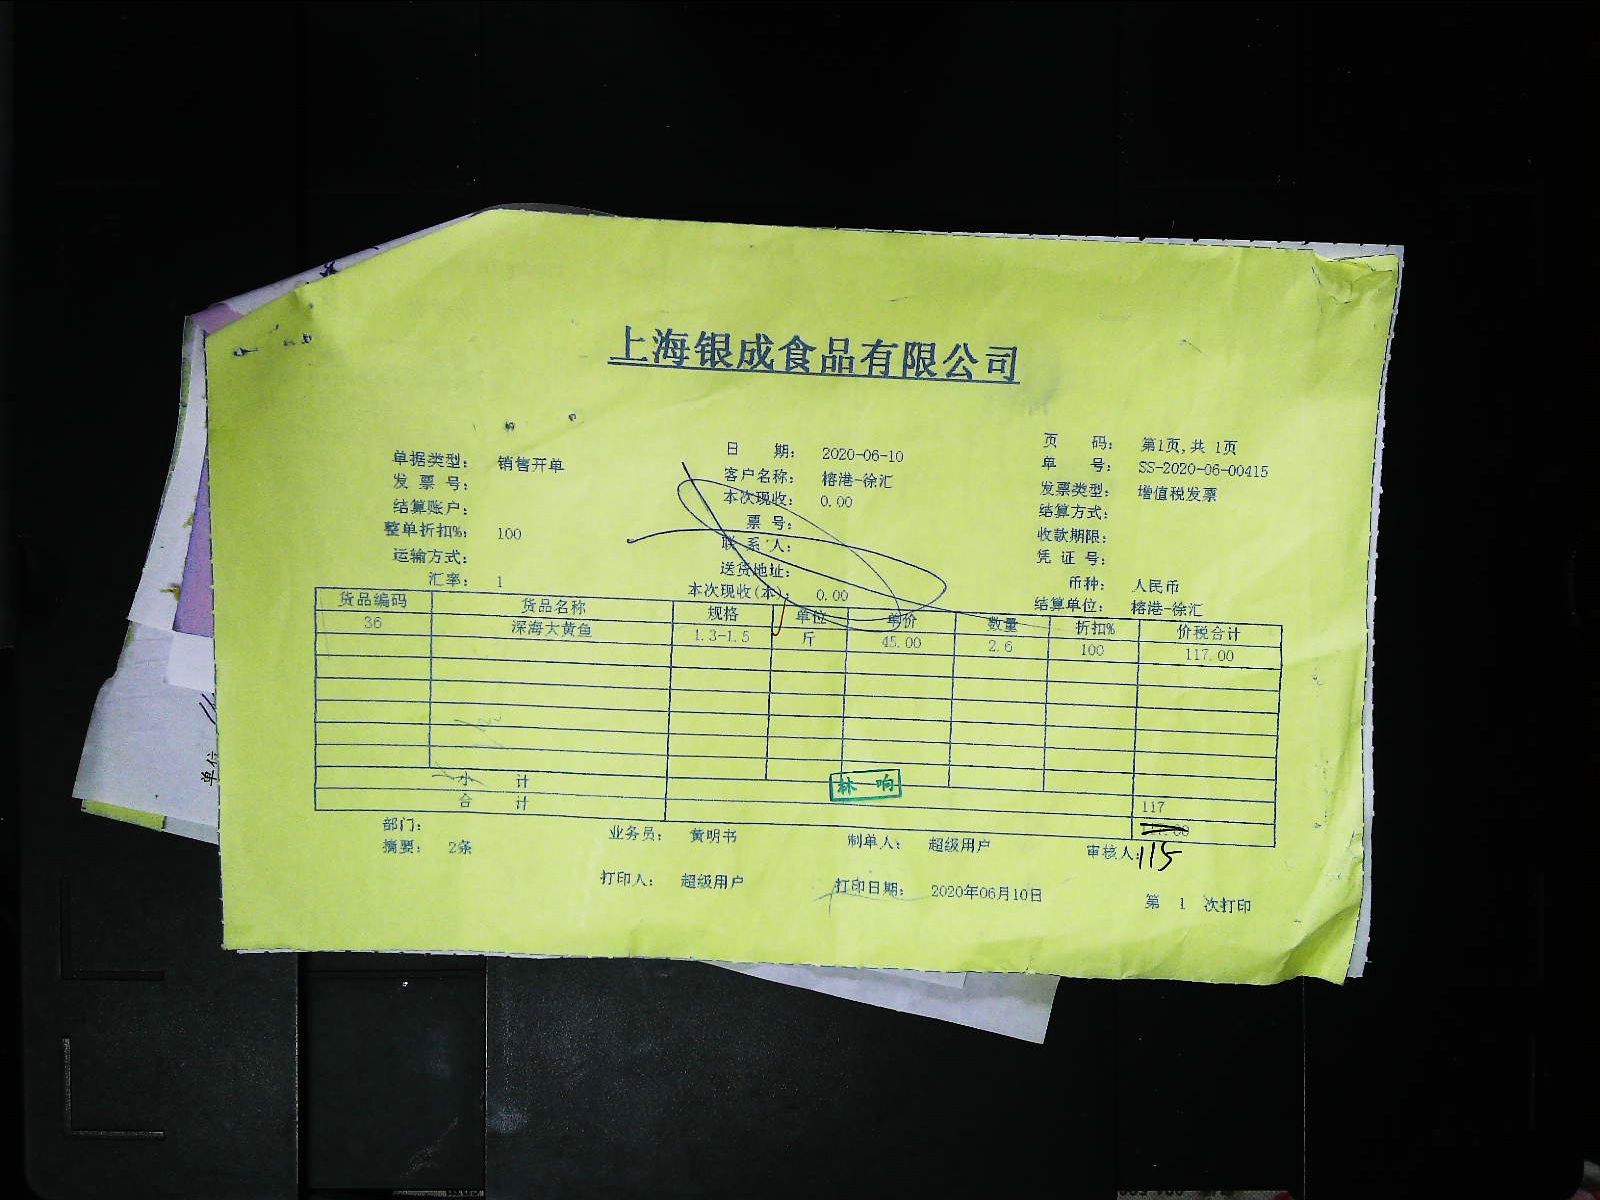 上海银成食品有限公司
单据类型: 销售开单 日 期: 2020-06-10 页 码: 第1页,共 1页
发 票 号: 客户名称: 榕港-徐汇 单 号: SS-2020-06-00415
结算账户: 本次现收: 0.00 发票类型: 增值税发票
整单折扣%: 100 票 号: 结算方式:
运输方式: 联 系 人: 收款期限:
汇率: 1 送货地址: 凭 证 号:
本次现收(本): 0.00 币种: 人民币
结算单位: 榕港-徐汇
货品编码 货品名称 规格 单位 单价 数量 折扣% 价税合计
36 深海大黄鱼 1.3-1.5 斤 45.00 2.6 100 117.00
小 计 117
合 计
林 响
115
部门: 业务员: 黄明书 制单人: 超级用户 审核人:
摘要: 2条
打印人: 超级用户 打印日期: 2020年06月10日 第 1 次打印
单位